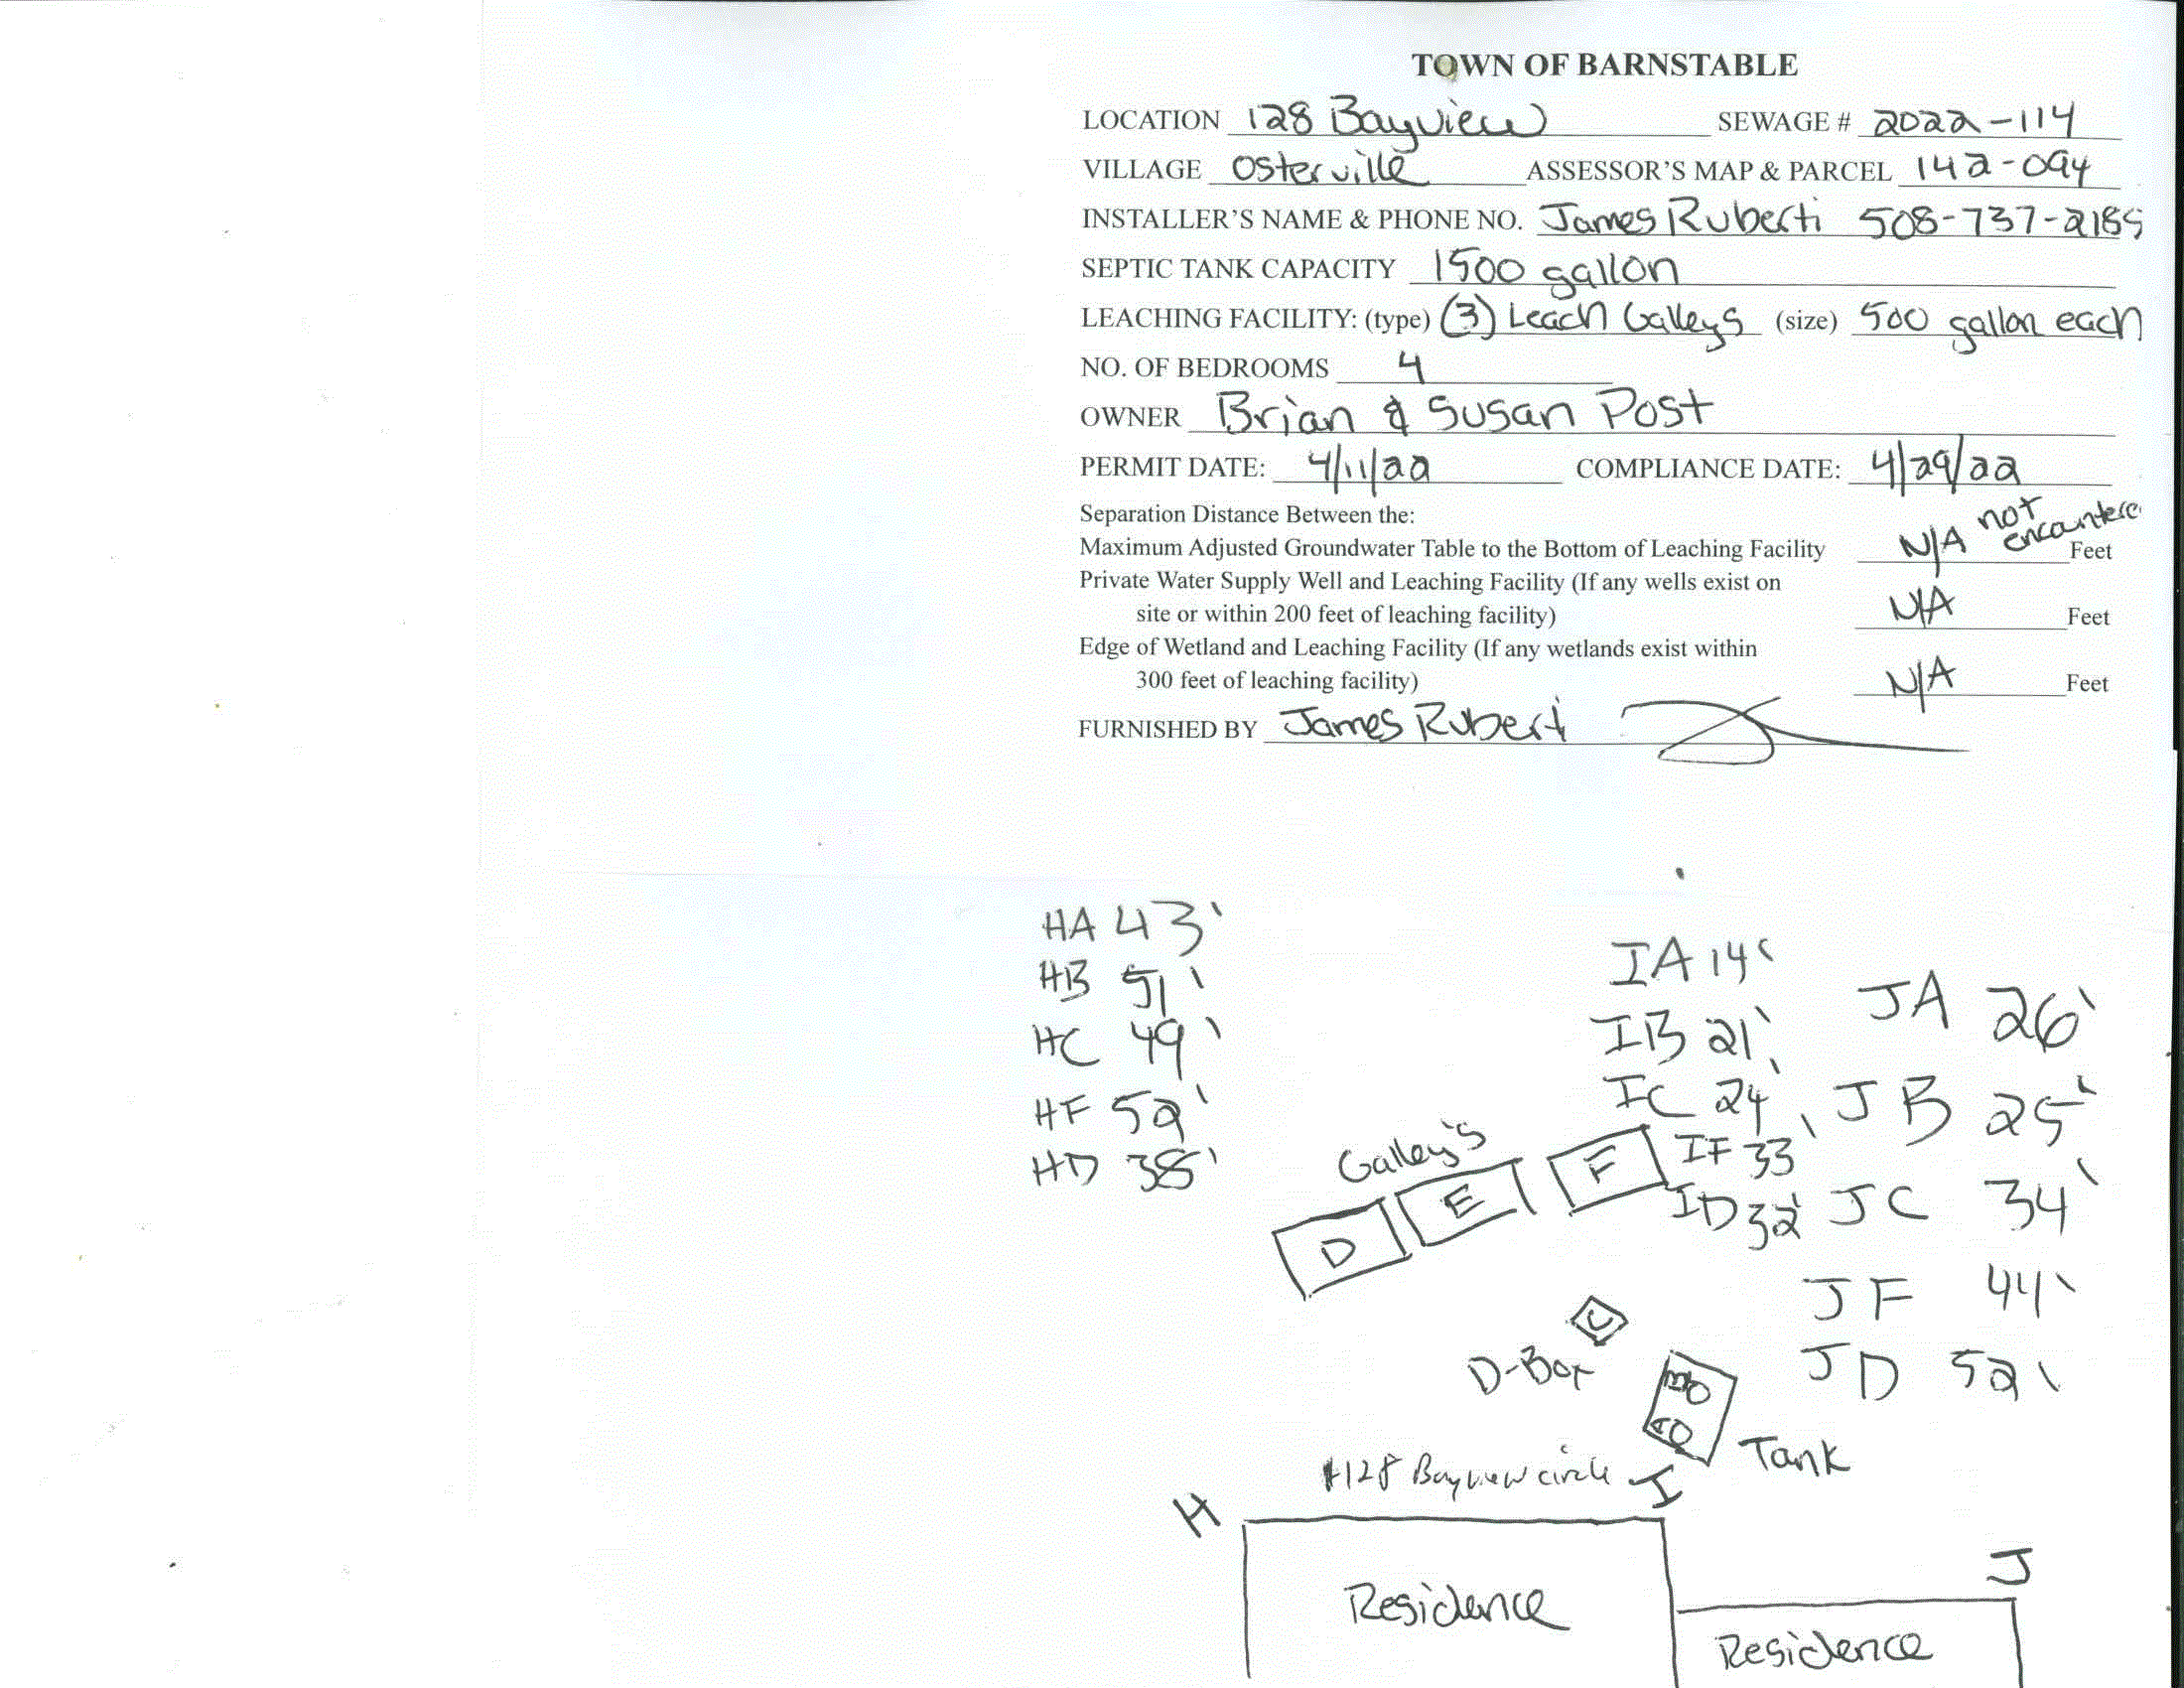 TOWN OF BARNSTABLE
LOCATION 128 Bayview SEWAGE # 2022-114
VILLAGE Osterville ASSESSOR'S MAP & PARCEL 142-094
INSTALLER'S NAME & PHONE NO. James Ruberti 508-737-2185
SEPTIC TANK CAPACITY 1500 gallon
LEACHING FACILITY: (type) (3) Leach Galleys (size) 500 gallon each
NO. OF BEDROOMS 4
OWNER Brian & Susan Post
PERMIT DATE: 4/11/22 COMPLIANCE DATE: 4/29/22
Separation Distance Between the:
Maximum Adjusted Groundwater Table to the Bottom of Leaching Facility N/A not encountere Feet
Private Water Supply Well and Leaching Facility (If any wells exist on
site or within 200 feet of leaching facility) N/A Feet
Edge of Wetland and Leaching Facility (If any wetlands exist within
300 feet of leaching facility) N/A Feet
FURNISHED BY James Ruberti
HA 43'
HB 51'
HC 49'
HF 52'
HD 38'
IA 14'
IB 21'
IC 24'
IF 33'
ID 32'
JA 26'
JB 25'
JC 34'
JF 44'
JD 52'
Galley's
D E F
C
D-Box
B
A
Tank
#128 Bayview circle
H
I
J
Residence
Residence